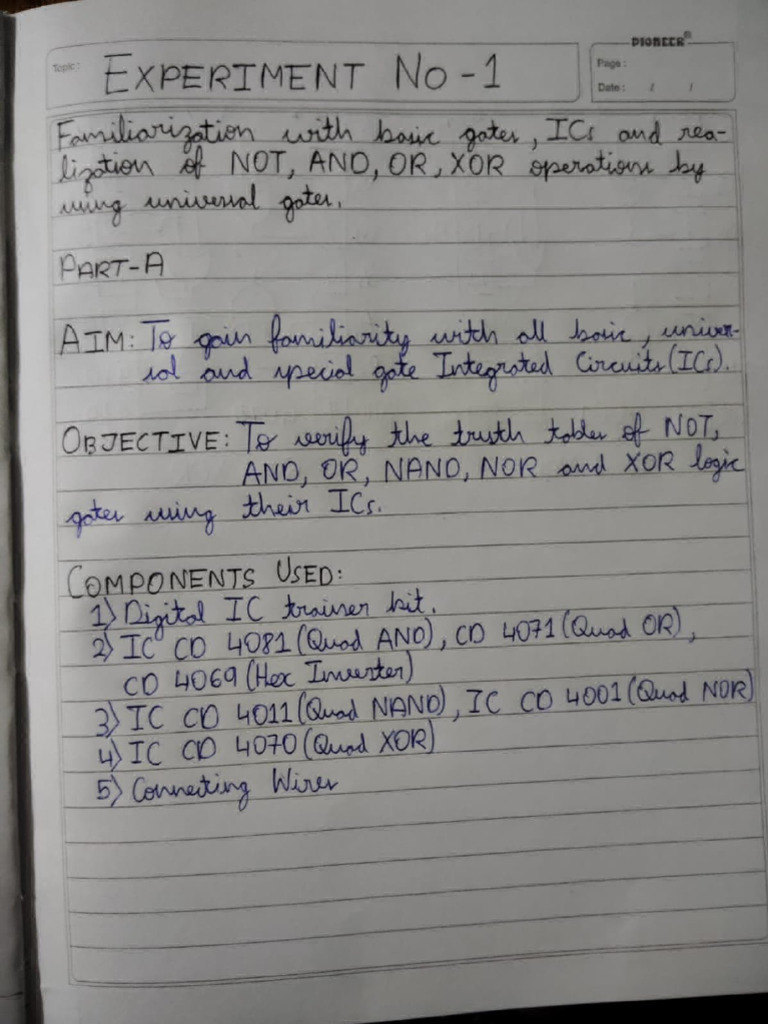 PIONEER®
Topic:
EXPERIMENT NO-1
Page:
Date: / /
Familiarization with basic gates, ICs and rea-
lization of NOT, AND, OR, XOR operations by
using universal gates.
PART-A
AIM: To gain familiarity with all basic, univer-
sal and special gate Integrated Circuits (ICs).
OBJECTIVE: To verify the truth tables of NOT,
AND, OR, NAND, NOR and XOR logic
gates using their ICs.
COMPONENTS USED:
1) Digital IC trainer kit.
2) IC CD 4081 (Quad AND), CD 4071 (Quad OR),
CD 4069 (Hex Inverter)
3) IC CD 4011 (Quad NAND), IC CD 4001 (Quad NOR)
4) IC CD 4070 (Quad XOR)
5) Connecting Wires